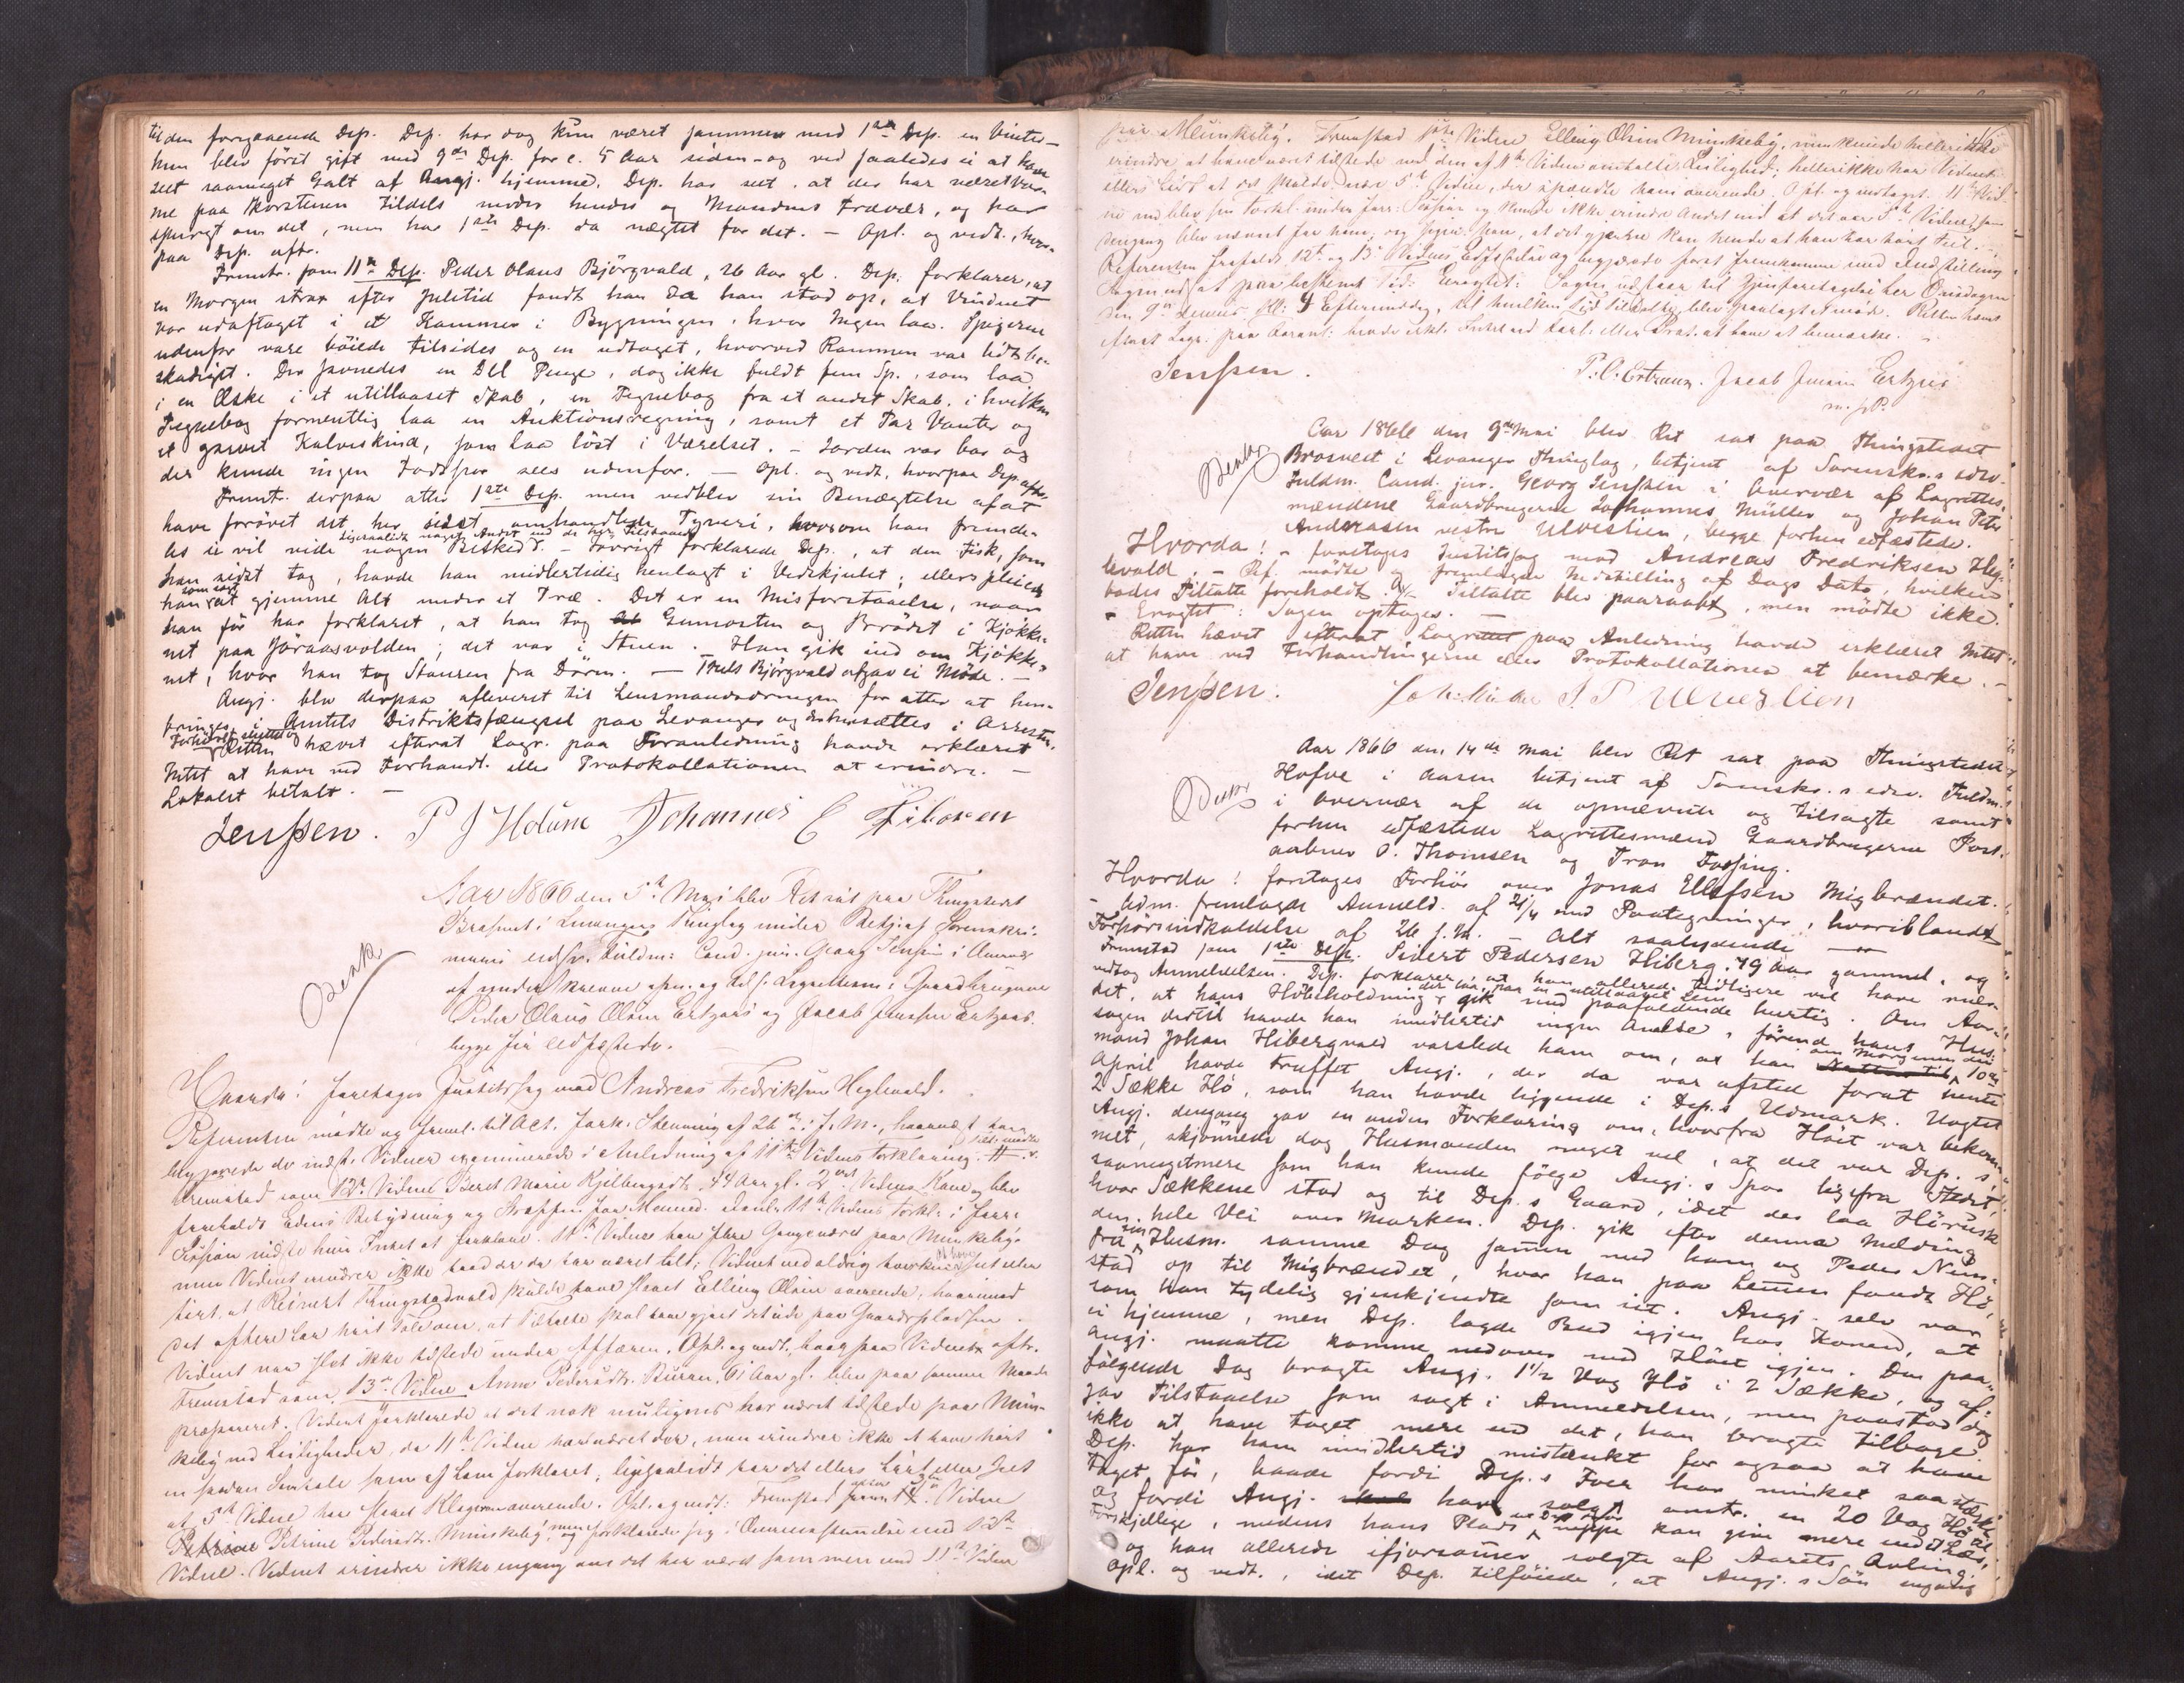 til den foregaaende Dep. Dep. har dog kun været sammen med 1ste Dep. en Vinter –
hun blev först gift med 9de Dep. for c. 5 Aar siden – og ved saaledes ei at have
seet saameget Galt af Angj. hjemme. Dep. har seet at der har været
me paa Skorstenen tildels under hendes og Mandens Fravær, og har
spurgt om det, men har 1ste Dep. da nægtet for det. – Opl. og vedt., hvor-
paa Dep. aftr.
Fremtr. som 11te Dep. Peder Olaus Björgvald, 26 Aar gl. Dep. forklarer, at
en Morgen strax efter Juletid fandt han da han stod op, at Vinduet
var udaftaget i et Kammer i Bygningen, hvor Ingen laa. Spigerne
udenfor vare böiede tilsides og en udtaget, hvorved Rammen var lidt be-
skadiget. Der savnedes en Del Penge, dog ikke fuldt fem Sp., som laa
i en Æske i et utillaaset Skab, en Tegnebog fra et andet Skab, i hvilken
Tegnebog formentlig laa en Auktionsregning, samt et Par Vanter og
et garvet Kalveskind, som laa löst i Værelset. – Jorden var bar og
der kunde ingen Fodspor sees udenfor. – Opl. og vedt., hvorpaa Dep. aftr.
Fremtr. derpaa atter 1ste Dep. men vedblev sin Benægtelse af at
have forövet det her sidst omhandlede Tyveri, hvorom han fremde-
les ei vil vide nogen Besked. – Iövrigt forklarede Dep., at den Fisk, som
han sidst tog, havde han midlertidig henlagt i Vedskjulet; ellers pleiede
han som sagt at gjemme Alt under et Træ. Det er en Misforstaaelse, naar
han för har forklaret, at han tog Gumosten og Brödet i Kjökke-
net paa Jöraasvolden; det var i Stuen. Han gik ind om Kjökke-
net, hvor han tog Stauren fra Dören. – Thels Björgvald afgav ei Möde. –
Angj. blev derpaa afleveret til Lensmandsdrengen for atter at hen-
bringes i Amtets Distriktsfængsel paa Levanger og der hensættes i Arrest.
Forhöret sluttet og
Retten hævet efterat Lagr. paa Foranledning havde erklæret
Intet at have ved Forhandl. eller Protokollationen at erindre. –
Lokalet betalt. –
Jenssen. P J Holum Johannes E
Aar 1866 den 5te Mai blev Ret sat paa Thingstedet
Brasvet i Levanger Thinglag under Betjen. af Sorenskri-
verens edsv. Fuldm: Cand. jur. Georg Jenssen i Overvær
af underskrevne opn. og tils. Lagrettem: Gaardbrugerne
Peder Olaus Olsen Ertzaas og Jacob Jensen Ertzaas.
begge för edfæstede.
Benke
Hvorda! foretoges Justitssag mod Andreas Fredriksen Heglevald.
Referenten mödte og freml. til Act. Stevning af 26de f. M., hvornæst han
begjærede de indst. Vidner examinerede i Anledning af 11te Vidnes Forklaring.
Fremstod som 12te Vidne Beret Marie Kjelbergsdtr. 44 Aar gl. 2det Vidnes Kone og blev
foreholdt Edens Betydning og Straffen for Meened. Vidnes Forkl. i forr.
Session vidste hun Intet at forklare. 11te Vidne har flere Gange været paa Munkeby
men Vidnet erindrer ikke naar der da har været tilst; Vidnet ved aldrig hverken at have seet eller
hört, at Reinert Ringstadvald skulde have slaaet Elling Olsen overende; hvorimod
det oftere har hört Tale om, at Tiltalte skal have gjort det ude paa Gaardspladsen.
Vidnet var selv ikke tilstede under Affæren. Opl. og vedt., hvorpaa Vidnet aftr.
Fremstod som 13de Vidne Anne Pedersdtr. Buran, 61 Aar gl. blev paa samme Maade
præpareret. Vidnet forklarede at det nok muligens har været tilstede paa Mun-
keby ved Leiligheder, da 11te Vidne har været der, men erindrer ikke at have hört
en saadan Samtale som af ham forklaret; ligesaalidt har det ellers hört eller seet
at 5te Vidne har slaaet Klageren overende. Opl. og vedt: Fremstod Vidne
Petrine Pedersdtr. Munkeby, og forklarede sig i Overensstemmelse med 12te
Vidne. Vidnet erindrer ikke engang om det har været sammen med 11te Vidne
paa Munkeby. Fremstod Vidne Elling Olsen Munkeby, men kunde hellerikke
erindre at have været tilstede ved den af 11te Vidne omtalte Leilighed; hellerikke har Vidnet
ellers hört at det skulde være 5te Vidne, der spændte ham overende. Opl. og vedtaget. 11te Vid-
ne vedblev sin Forkl. under forr. Session og kunde ikke erindre Andet end at det var 5te Vidne, som
dengang blev nævnt for ham; og siger han, at det gjerne kan hende at han har hört feil.
Referenten frafaldt 12te og 13de Vidnes Edfæstelse og begjærede først fremkomme med Indstilling
i Sagen udsat paa bestemt Tid: Eragtet: Sagen udstaar til Gjenforetagelse her Onsdagen
den 9de dennes Kl: 4 Eftermiddag, til hvilken Tid Tiltalte blev paalagt at möde. Retten hævet
efterat Lagr. paa Foranl. havde erkl. Intet ved Forh. eller Prot. at have at bemærke.
Jenssen. P. O. Ertzaas. Jacob Jensen Ertzaas
m. f. P.
Aar 1866 den 9de Mai blev Ret sat paa Thingstedet
Brasvet i Levanger Thinglag, betjent af Sorenskr.s edsv.
Fuldm. Cand. jur. Georg Jenssen i Overvær af Lagrettes-
mændene Gaardbrugerne Johannes Müller og Johan Peter
Andreasen vestre Ulvestien, begge forhen edfæstede.
Benke
Hvorda! – foretoges Justitssag mod Andreas Fredriksen Heg-
levald. – Ref. mödte og fremlagde Indstilling af Dags Dato, hvilken
bades Tiltalte foreholdt. Tiltalte blev paaraabt, men mödte ikke.
– Eragtet: Sagen optages. –
Retten hævet efterat Lagrettet paa Anledning havde erklæret Intet
at have ved Forhandlingerne eller Protokollationen at bemærke. –
Jenssen. Joh: Müller J. P. Ulvestien
Aar 1866 den 14de Mai blev Ret sat paa Thingstedet
Hofve i Aasen betjent af Sorenskr.s edsv. Fuldm.
i Overvær af de opnævnte og tilsagte samt
forhen edfæstede Lagrettesmænd Gaardbrugerne Post-
aabner O. Thomsen og Tron Fossing.
Benke
Hvorda! foretoges Forhör over Jonas Ellefsen Migbrændet.
– Adm. fremlagde Anmeld. af 21/4 med Paategninger, hvoriblandt
Forhörsindkaldelse af 26 f. M. – Alt saalydende –
Fremstod som 1ste Dep. Sivert Pedersen Hiberg, 49 Aar gammel, og
vedtog Anmeldelsen. Dep. forklarer, at han allerede tidligere vil have mær-
ket, at hans Höbeholdning, der laa paa en utillaaset Lem gik med paafaldende hurtig. Om Aar-
sagen dertil havde han imidlertid ingen Anelse, förend hans Hus-
mand Johan Hibergvald varslede ham om, at han om Morgenen den 10de
April havde truffet Angj., der da var afsted forat hente
2 Sække Hö, som han havde liggende i Dep.s Udmark. Uagtet
Angj. dengang gav en anden Forklaring om, hvorfra Höet var bekom-
met, skjönnede dog Husmanden meget vel, at det var Dep.s,
saameget mere som han kunde fölge Angj.s Spor ligefra Stedet,
hvor Sækkene stod og til Dep.s Gaard, idet der laa Hörusk
den hele Vei over Marken. Dep. gik efter denne Melding
fra sin Husm. samme Dag sammen med ham og Peder Nem-
stad op til Migbrændet, hvor han paa Lemmen fandt Hö,
som han tydelig gjenkjendte som sit. Angj. selv var
ei hjemme, men Dep. lagde Bud igjen hos Konen, at
Angj. maatte komme nedover med Höet igjen. Den paa-
fölgende Dag bragte Angj. 1 1/2 Vog Hö i 2 Sække, og af-
gav Tilstaaelse som sagt i Anmeldelsen, men paastod dog
ikke at have taget mere end det, han bragte tilbage.
Dep. har ham imidlertid mistænkt for ogsaa at have
taget för, baade fordi Dep.s Foer har minket saa stærkt
og fordi Angj. har solgt omtr. en 20 Vog Hö til
Forskjellige, medens hans Plads neppe kan give mere end et Læs,
og han allerede ifjorsommer solgte af Aarets Avling.
Opl. og vedt., idet Dep. tilföiede, at Angj.s Sön engang